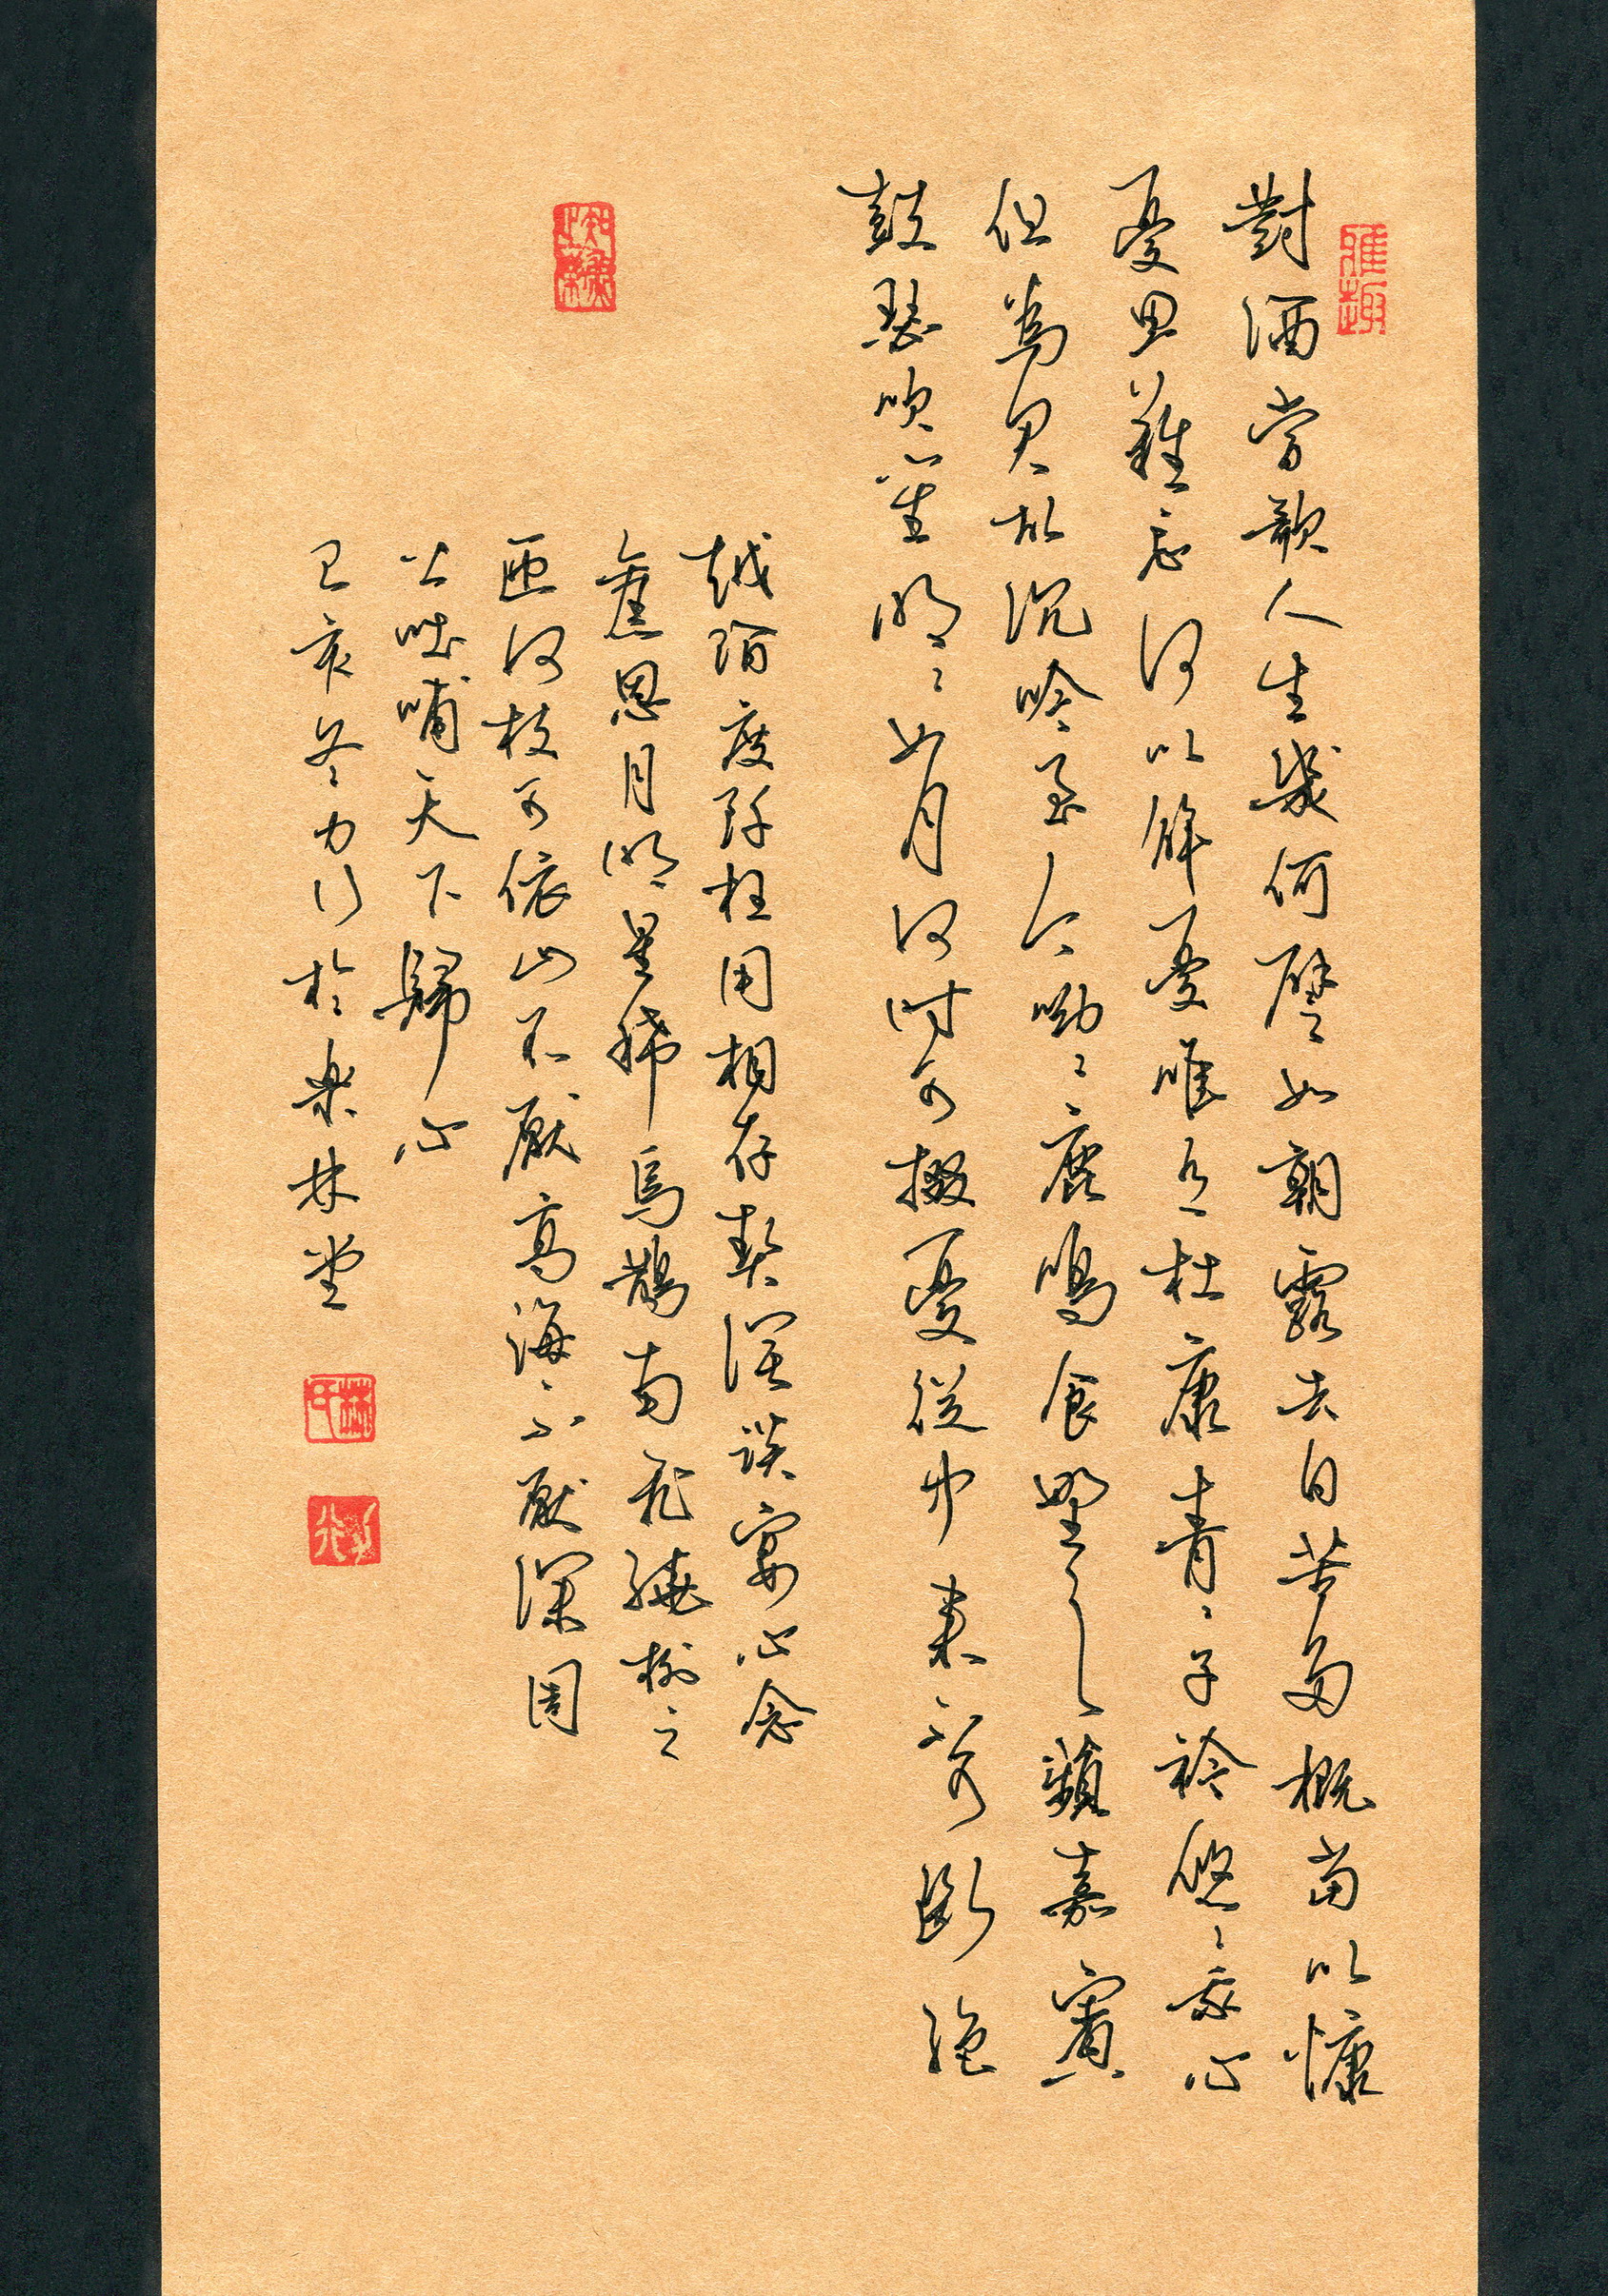 雅趣
對酒當歌人生幾何譬如朝露去日苦多概當以慷
憂思難忘何以解憂唯有杜康青〻子衿悠〻我心
但為君故沉吟至今呦〻鹿鳴食野之蘋嘉賓
鼓瑟吹笙明〻如月何時可掇憂從中來不可斷絕
越陌度阡枉用相存契闊談宴心念
舊恩月明星稀烏鵲南飛繞樹三
匝何枝可依山不厭高海不厭深周
公吐哺天下歸心
己亥冬力行於樂林堂
力行